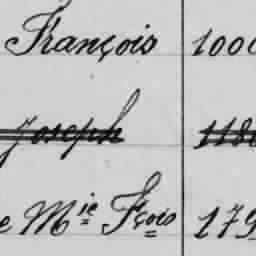 François 1000
Joseph 118
e Mie Fçois 179